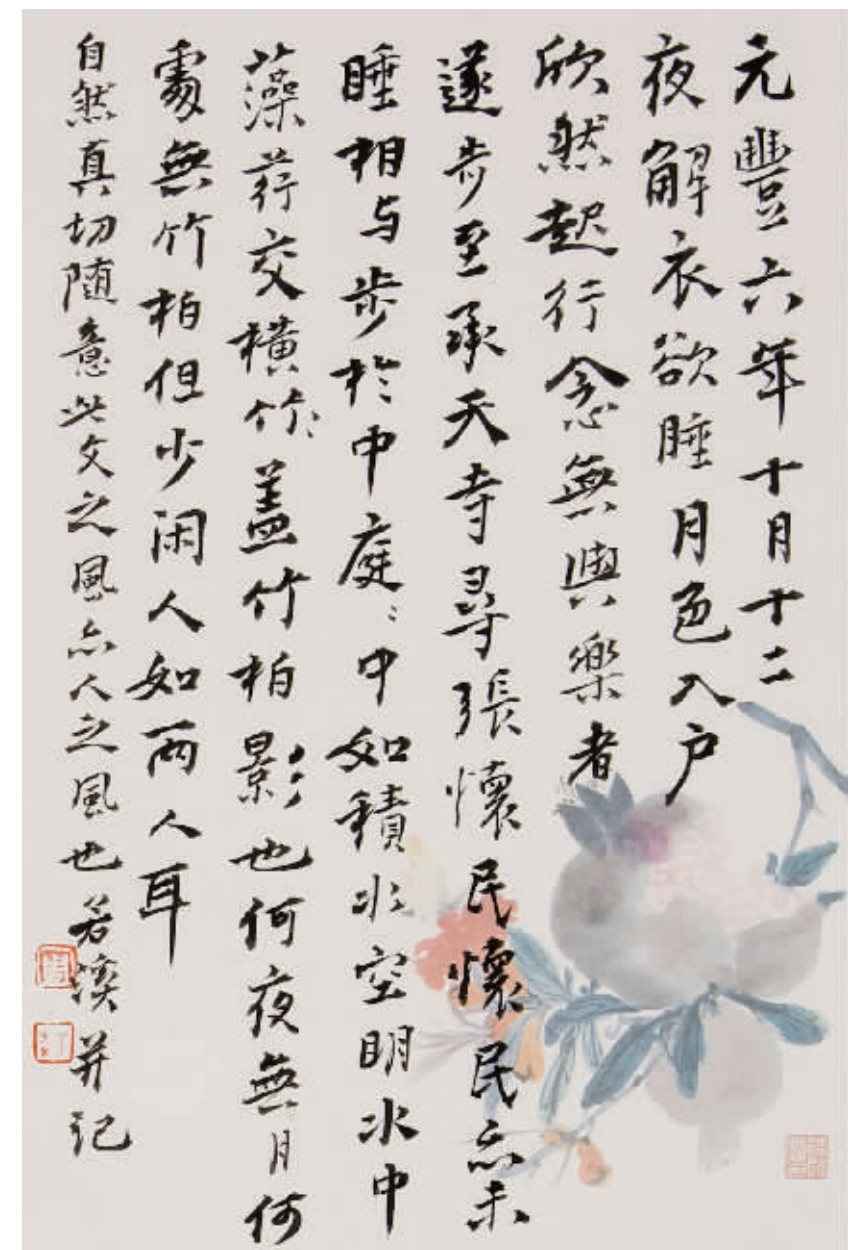 元豐六年十月十二
夜解衣欲睡月色入户
欣然起行念無與樂者
遂步至承天寺尋張懷民懷民亦未
睡相与步於中庭〻中如積水空明水中
藻荇交橫竹蓋竹柏影也何夜無月何
處無竹柏但少闲人如兩人耳
自然真切随意此文之風亦人之風也若溪并記